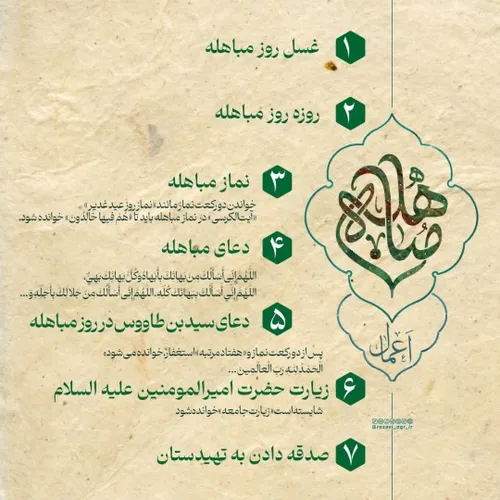 مباهله
اعمال
۱ غسل روز مباهله
۲ روزه روز مباهله
۳ نماز مباهله
خواندن دو رکعت نماز مانند «نماز روز عید غدیر»
«آیت‌الکرسی» در نماز مباهله باید تا «هُم فیها خالدُون» خوانده شود.
۴ دعای مباهله
اللهُمّ اِنّی أسألُكَ مِن بَهائِكَ بِأبهاهُ وَ كُلُّ بَهائِكَ بَهِیٌ،
اللهُمّ اِنّی أسألُكَ بِبَهائِكَ كُلّه. اللهُمّ اِنّی أسألُكَ مِن جَلالِكَ بِأجَلِّه و...
۵ دعای سید بن طاووس در روز مباهله
پس از دو رکعت نماز و «هفتاد مرتبه» استغفار، خوانده می‌شود:
الحَمدُ لِلهِ رَبّ العالَمین ...
۶ زیارت حضرت امیرالمومنین علیه السلام
شایسته است «زیارت جامعه» خوانده شود
۷ صدقه دادن به تهیدستان